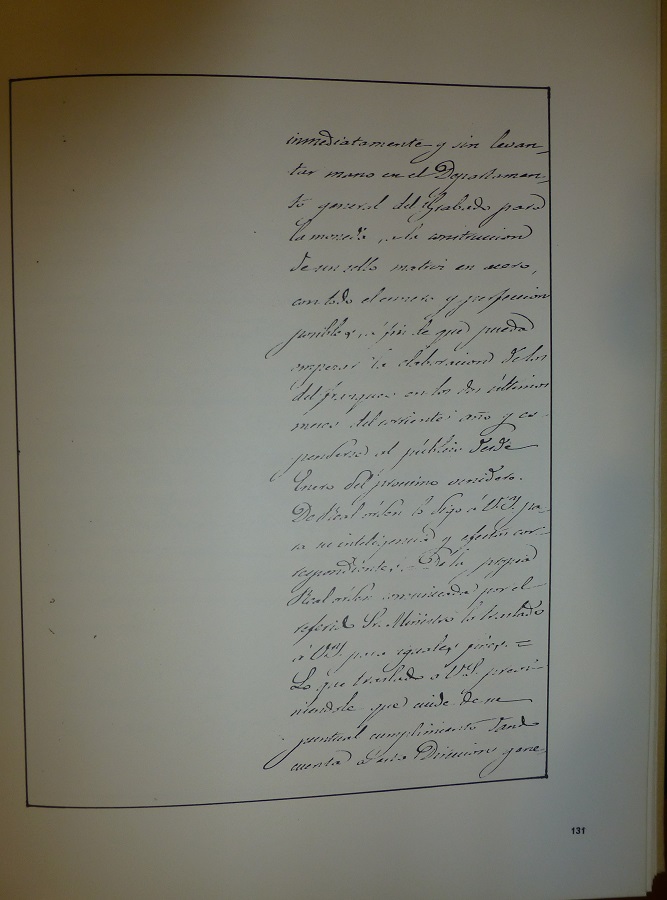 inmediatamente y sin levan-
tar mano en el Departamen-
to general del Grabado para
la moneda, a la construccion
de un sello matriz en acero,
con todo el esmero y perfeccion
posibles, á fin de que pueda
empezar la elaboracion de los
del franqueo en los dos últimos
meses del corriente año y es-
penderse al público desde
Enero del procsimo venidero.
De Real orden lo digo á V.Y. pa-
ra su inteligencia y efectos cor-
respondientes. De la propia
Real orden comunicada por el
referido Sr. Ministro lo traslado
á V.S. para iguales fines. =
Lo que traslado á V.S. previ-
niendole que cuide de su
puntual cumplimiento dando
cuenta a esta Direccion gene-
131